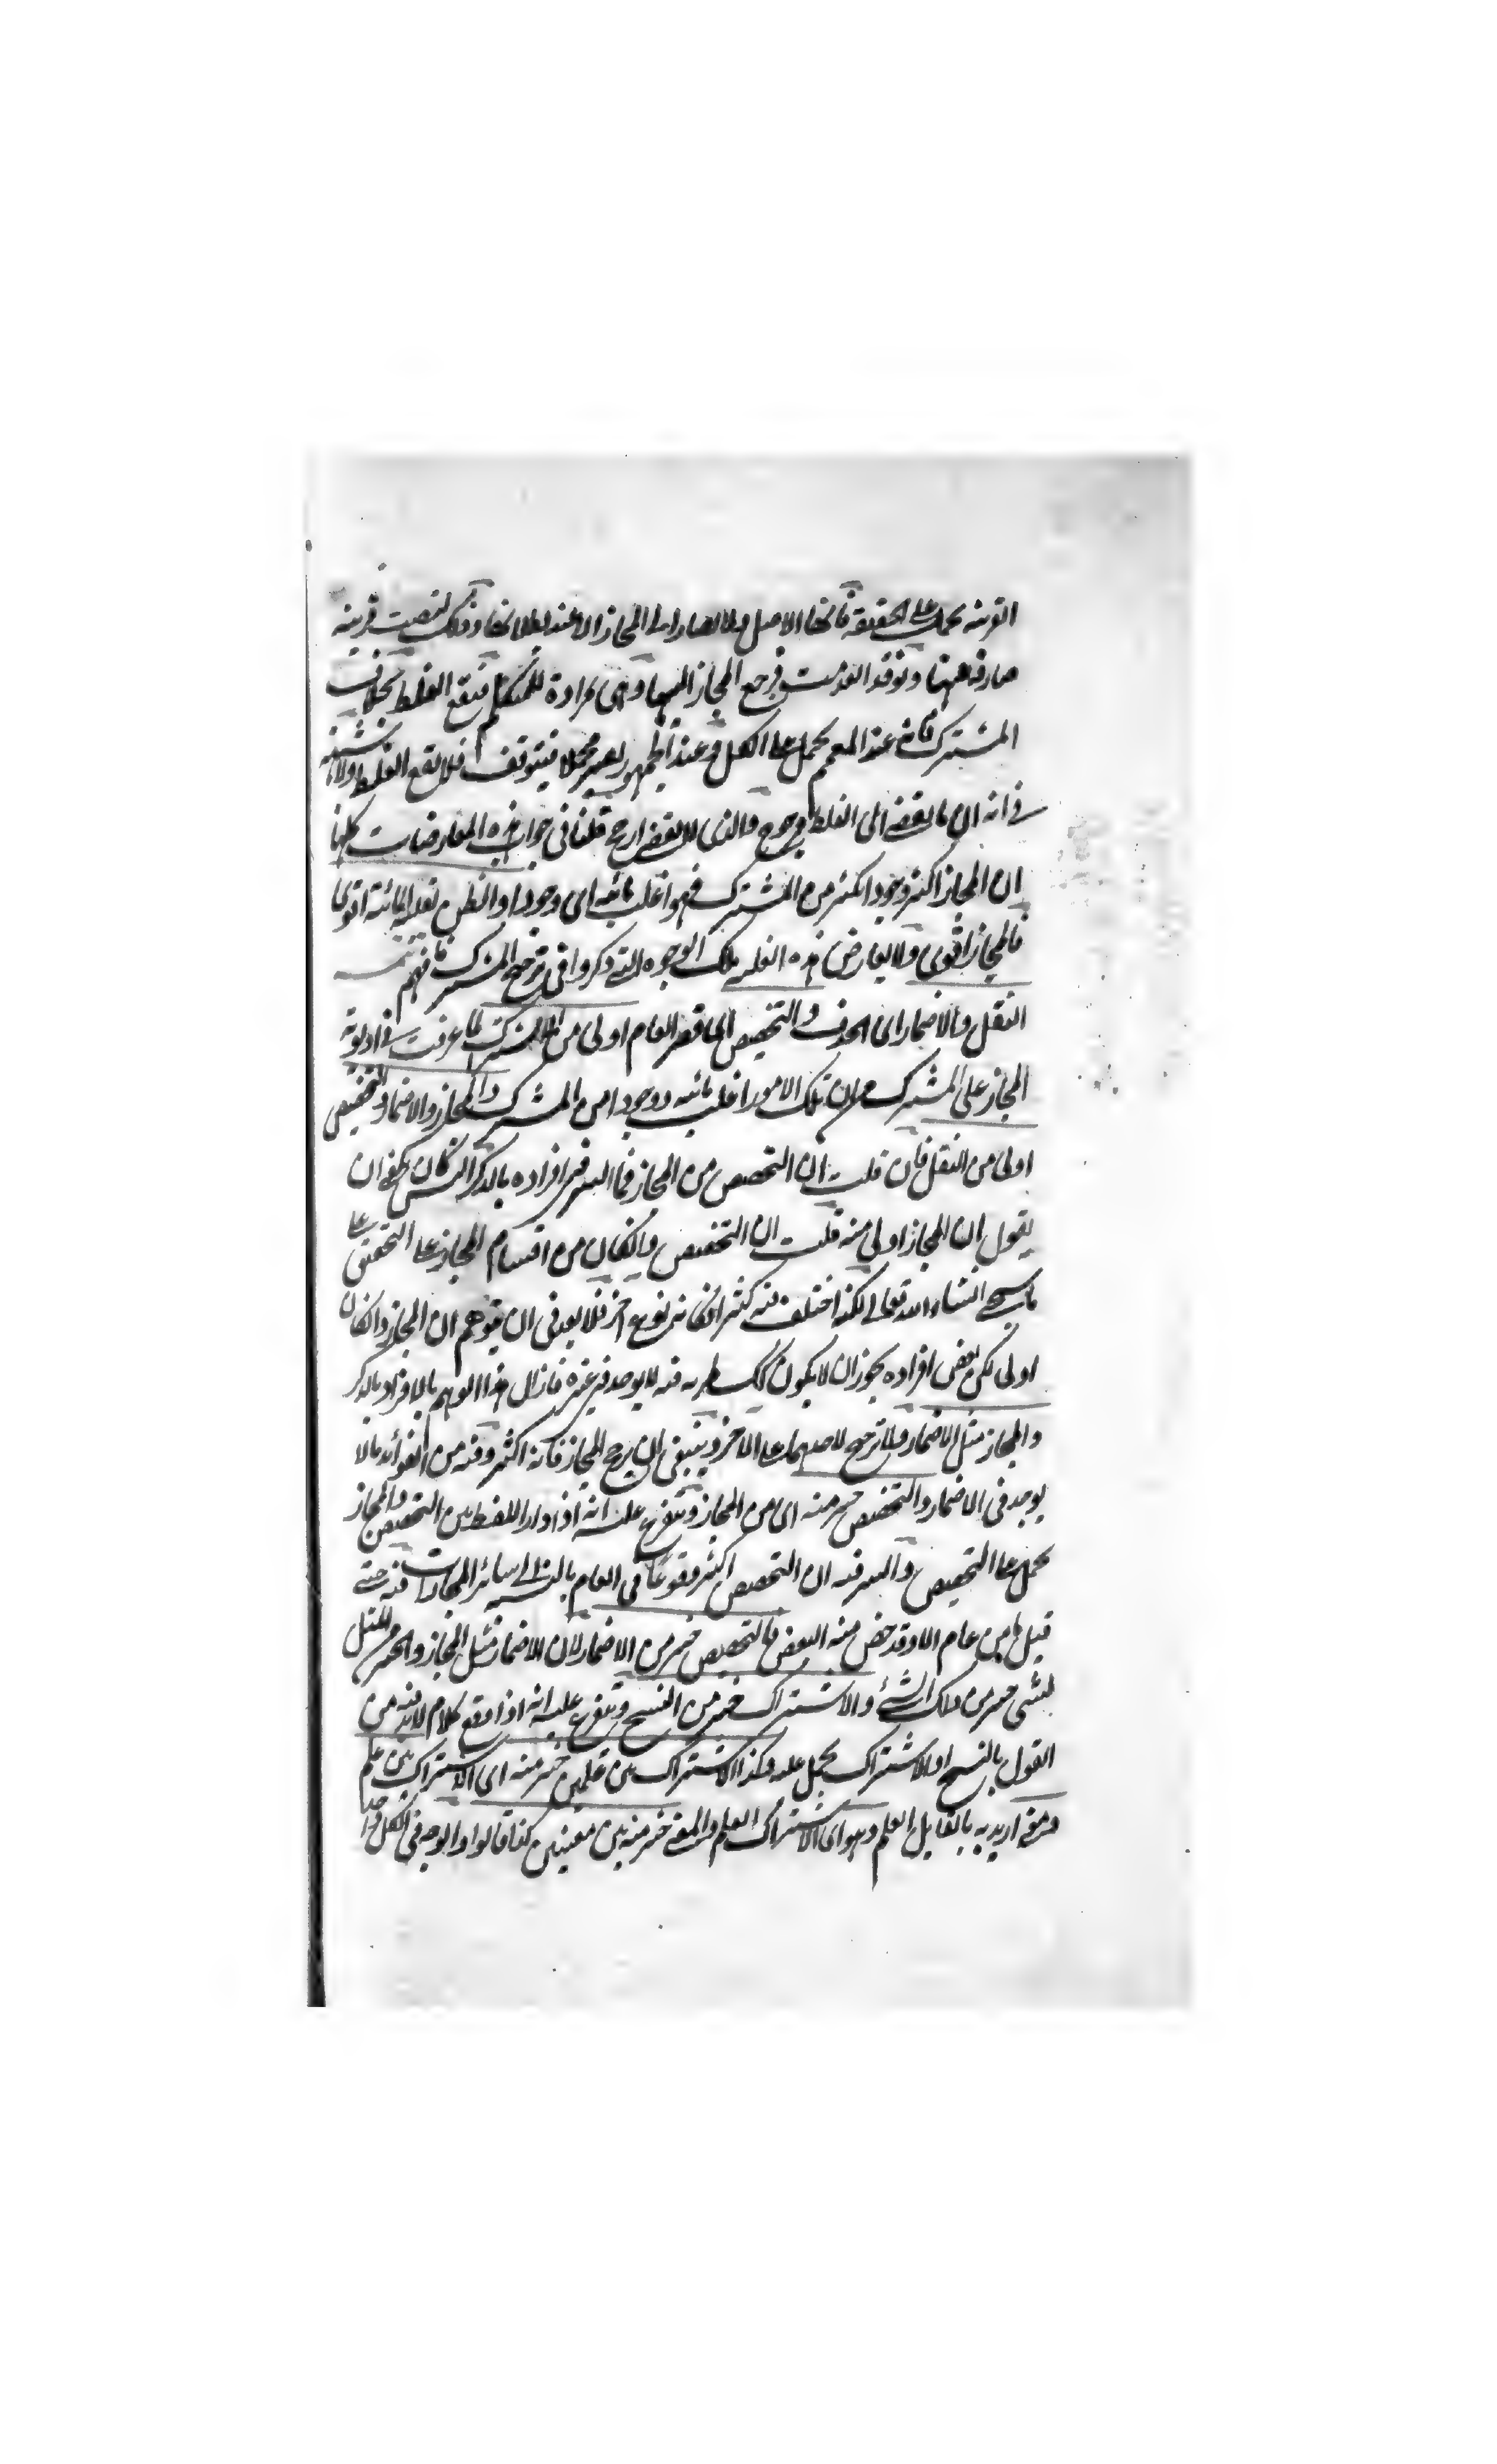 القرينة يحمل على الحقيقة فانها الاصل ولا يصار الى المجاز الا عند بطلانها وذلك بنصب قرينة
صارفة ههنا وقد انعدمت فرجع المجاز اليها وهى مرادة للمتكلم فيقع الغلط بخلاف
المشترك فانه عند المعمم يحمل على الكل وعند الجمهور يصير مجملا فيتوقف فلا يقع الغلط ولا شبهة
فى انه ان ما يفضى الى الغلط مرجوح والذى لا يفضى ارجح قلنا فى جواب هذه المعارضات كلها
ان المجاز اكثر وجودا اكثر من المشترك فهو اغلب مائة اى وجودا والظن تغلبه اقوى
فالمجاز اقوى ولا يعارض هذه الغلبة تلك الوجوه التى ذكروا فى ترجيح المشترك فافهم تتمة
النقل والاضمار اى الحذف والتخصيص اى قصر العام اولى من المشترك لما عرفت فى اولوية
المجاز على المشترك من ان تلك الامور اغلب وجودا من المشترك والمجاز والاضمار والتخصيص
اولى من النقل فان قلت ان التخصيص من المجاز فما السر فى افراده بالذكر اليس كان يكفى ان
يقول ان المجاز اولى منه قلت ان التخصيص وان كان من اقسام المجاز على التحقيق على
ما سيجئ انشاء الله تعالى لكنه اختلف فيه كثيرا كانه نوع اخر فلا يبعد فى ان يتوهم ان المجاز وان كان
اولى لكن بعض افراده يجوز ان لا يكون كك لطريه فيه لا يوجد فى غيره فازال هذا الوهم بالافراد بالذكر
والمجاز مثل الاضمار ولا ترجيح لاحدهما على الاخر وينبغى ان يرجح المجاز فانه اكثر وفيه من الفوائد ما لا
يوجد فى الاضمار والتخصيص خير منه اى من المجاز ويتفرع عليه انه اذا دار اللفظ بين التخصيص والمجاز
يحمل على التخصيص والسر فيه ان التخصيص اكثر وقوعا فى العام بالنسبة الى سائر المجازات فيه حتى
قيل ما من عام الا وقد خص منه البعض فالتخصيص خير من الاضمار لان الاضمار مثل المجاز والخير من المثل
لشئ خير من ذلك الشئ والاشتراك خير من النسخ ويتفرع عليه انه اذا وقع كلام لابد فيه من
القول بالنسخ او الاشتراك يحمل عليه وكذا الاشتراك بين علمين خير منه اى الاشتراك بين علم
ومعنى اريد به ما يقابل العلم وهو اى الاشتراك بين العلم والمعنى خير منه بين معنيين كذا قالوا والوجه فى الكل واحد